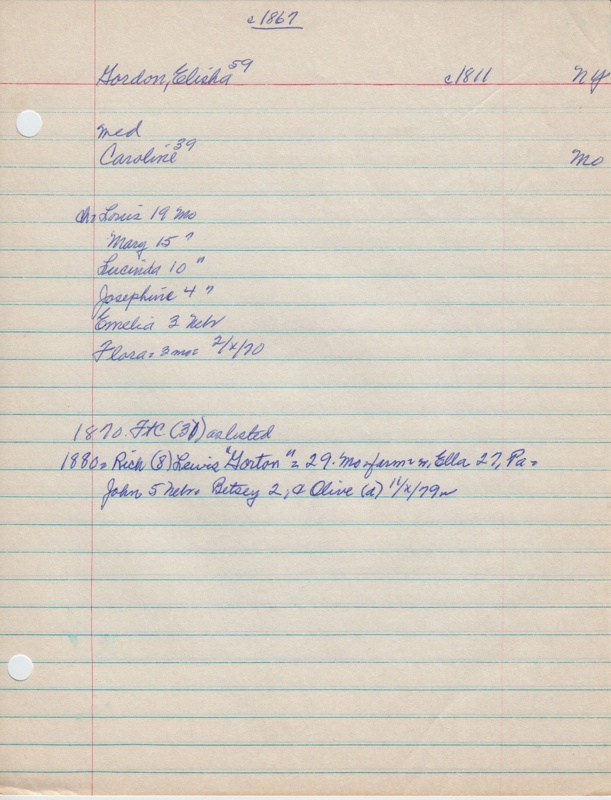 c1867
Gordon, Elisha 59 c1811 NY
med
Caroline 39 Mo
ch: Louis 19 Mo
Mary 15 "
Lucinda 10 "
Josephine 4 "
Emelia 3 Nebr
Flora = 3 mos 2/x/70
1870. FtC (31) as listed
1880 = Rich (8) Lewis "Gorton" = 29. Mo = farm = m, Ella 27, Pa =
John 5 Nebr. Betsey 2, & Olive (d) 11/x/79